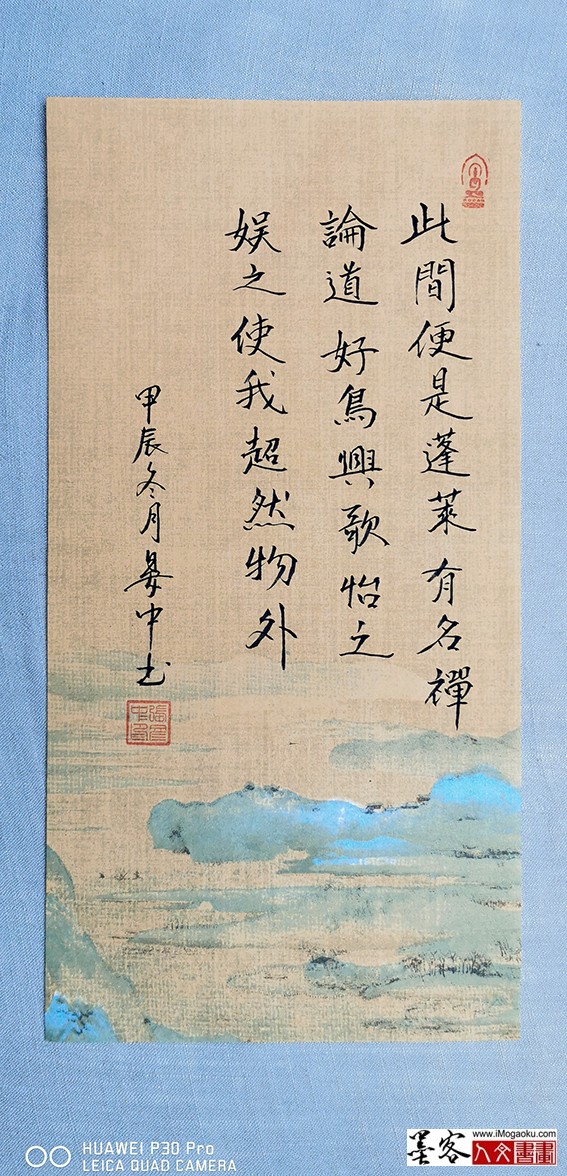 此間便是蓬萊有名禪
論道好鳥興歌怡之
娛之使我超然物外
甲辰冬月晏中书
HUAWEI P30 Pro
LEICA QUAD CAMERA
www.iMogaoku.com
墨客
人文書畫